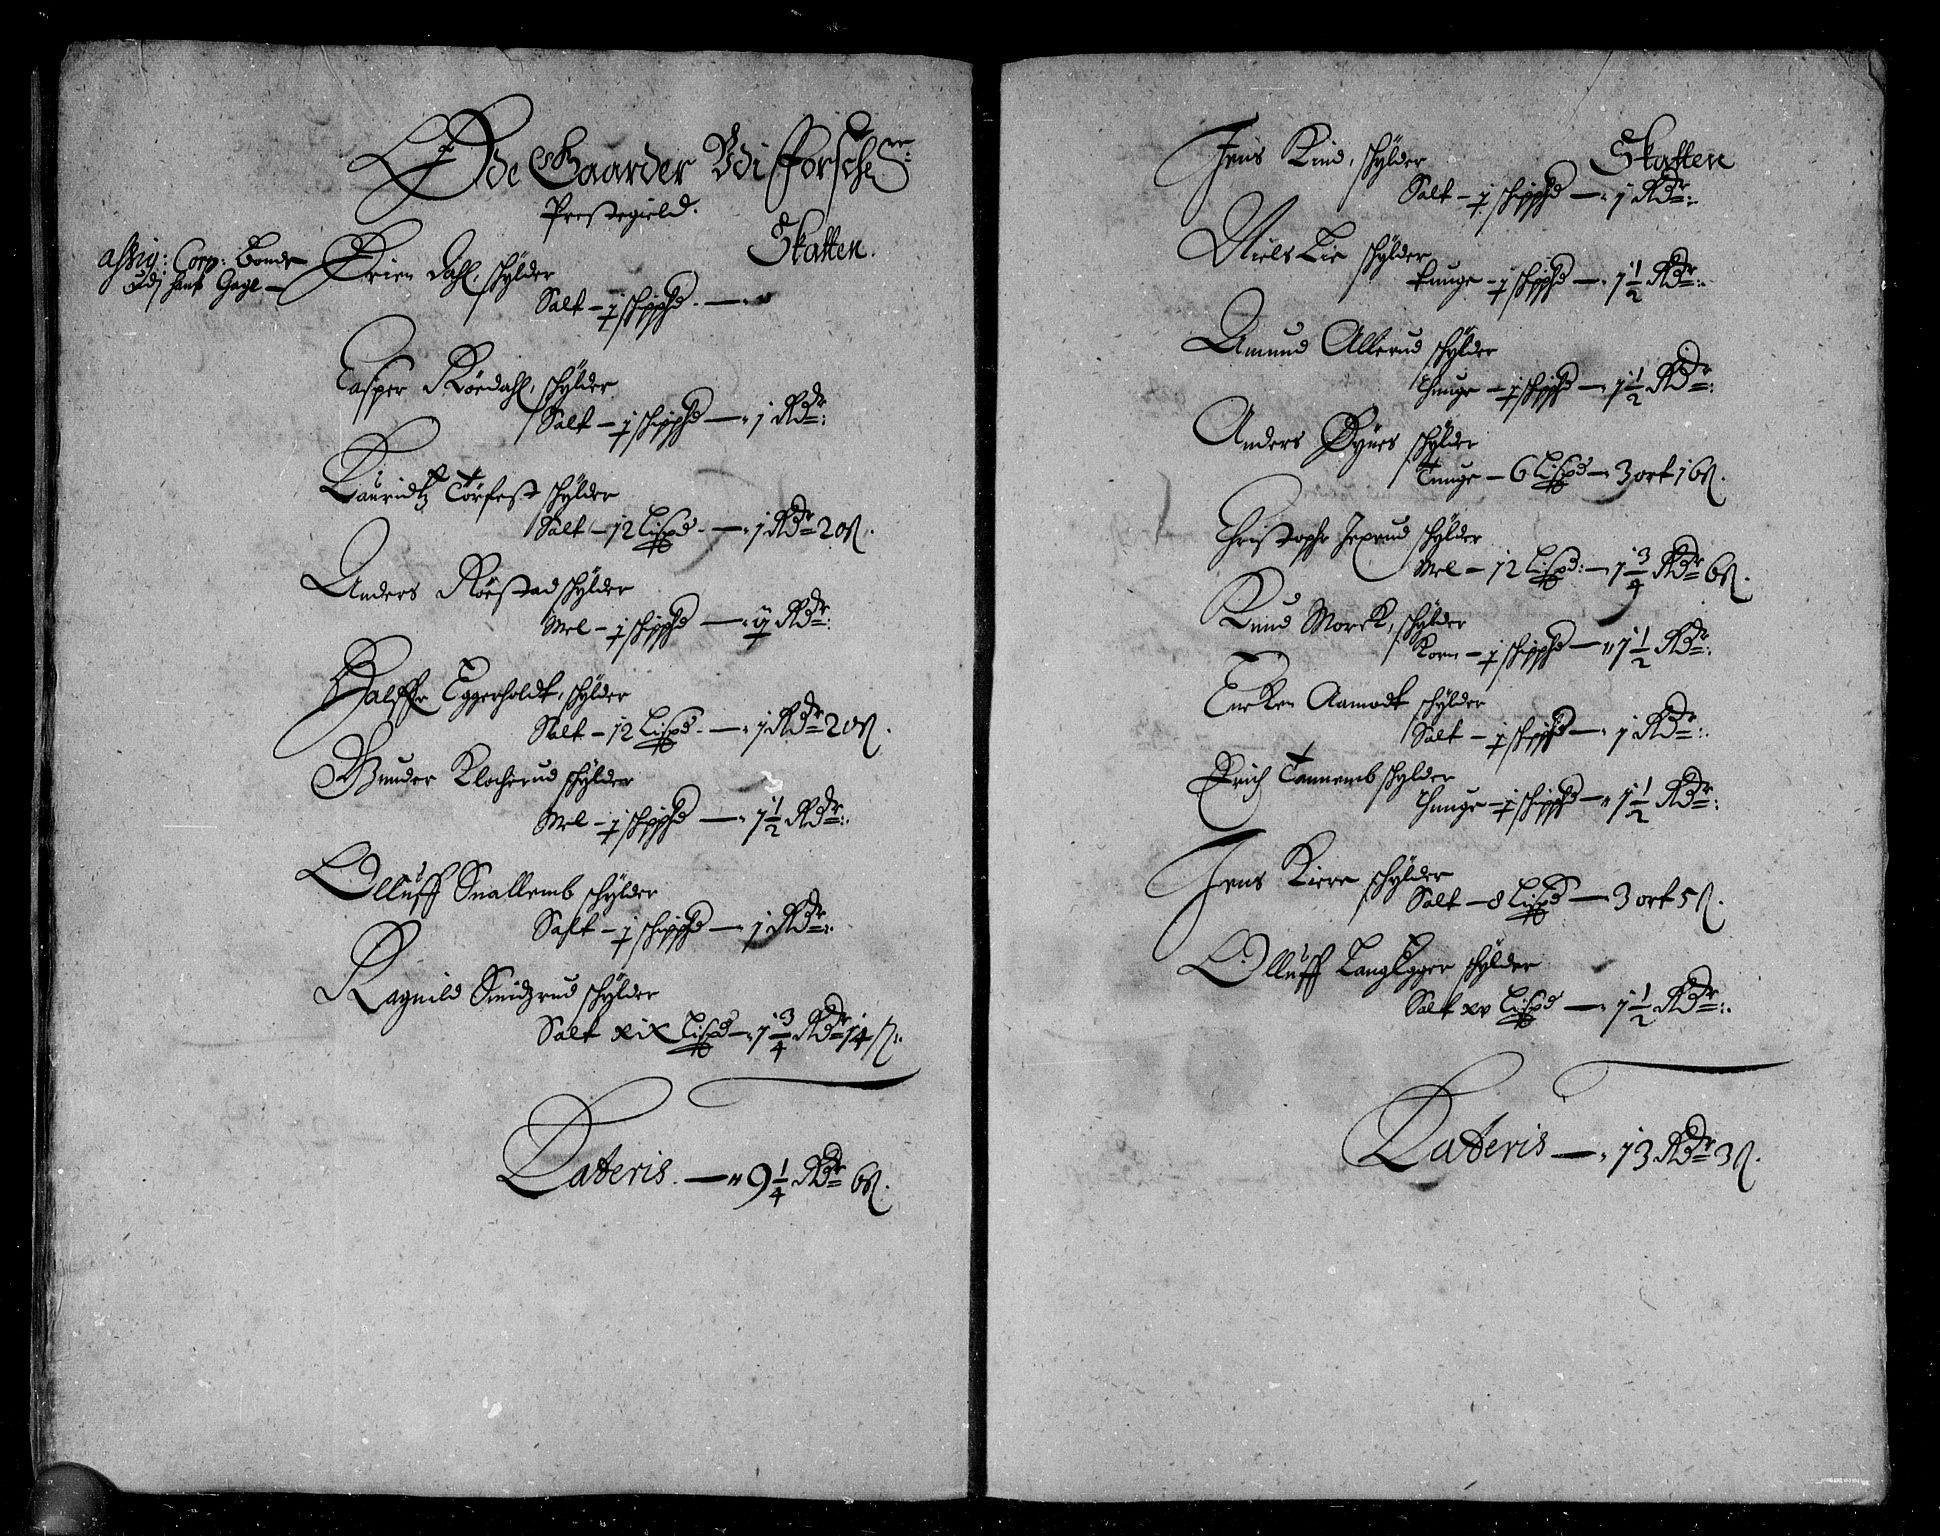 Øde Gaarder Vdi Forsche
Prestegield.
Skatten.
assig: Corp: Bonde
Udj hans Gage
Brien Dahl, schÿlder
Salt – j schippd. —
Casper Röedahl, schÿlder
Salt – j schippd — j Rdr:
Lauridtz Törfest schÿlder
Salt – 12 Lispd. — j Rdr 20 ß.
Anders Röestad schÿlder
Mel – j schippd — ij Rdr:
Halffr Eggerholdt, schÿlder
Salt – 12 Lispd. — j Rdr 20 ß.
Gunder Klocherud schÿlder
Mel – j schippd — 1 1/2 Rdr:
Olluff Snallemb schÿlder
Salt – j schippd — j Rdr:
Ragnild Smidzrud schÿlder
Salt xix Lispd — 1 3/4 Rdr 14 ß:
Lateris. — 9 1/4 Rdr 6 ß.
Skatten
Jens Kind, schÿlder
Salt – j schippd — j Rdr:
Niels Lie schÿlder
Tunge – j schippd — 1 1/2 Rdr:
Amund Allerud schÿlder
Thunge – j schippd — 1 1/2 Rdr:
Anders Bynes schÿlder
Tunge – 6 Lispd — 3 ort 16 ß.
Christopher Jexrud schÿlder
Mel – 12 Lispd: — 1 3/4 Rdr 6 ß.
Knud Morck, schÿlder
Korn – j schippd — 1 1/2 Rdr:
Encken Aamodt schÿlder
Salt – j schippd — j Rdr:
Erich Tannemb schÿlder
Thunge – j schippd — 1 1/2 Rdr:
Jens Kiere schÿlder
Salt – 8 Lispd — 3 ort 5 ß.
Olluff LangEgger schÿlder
Salt xv Lispd — 1 1/2 Rdr:
Lateris — 13 Rdr 3 ß.